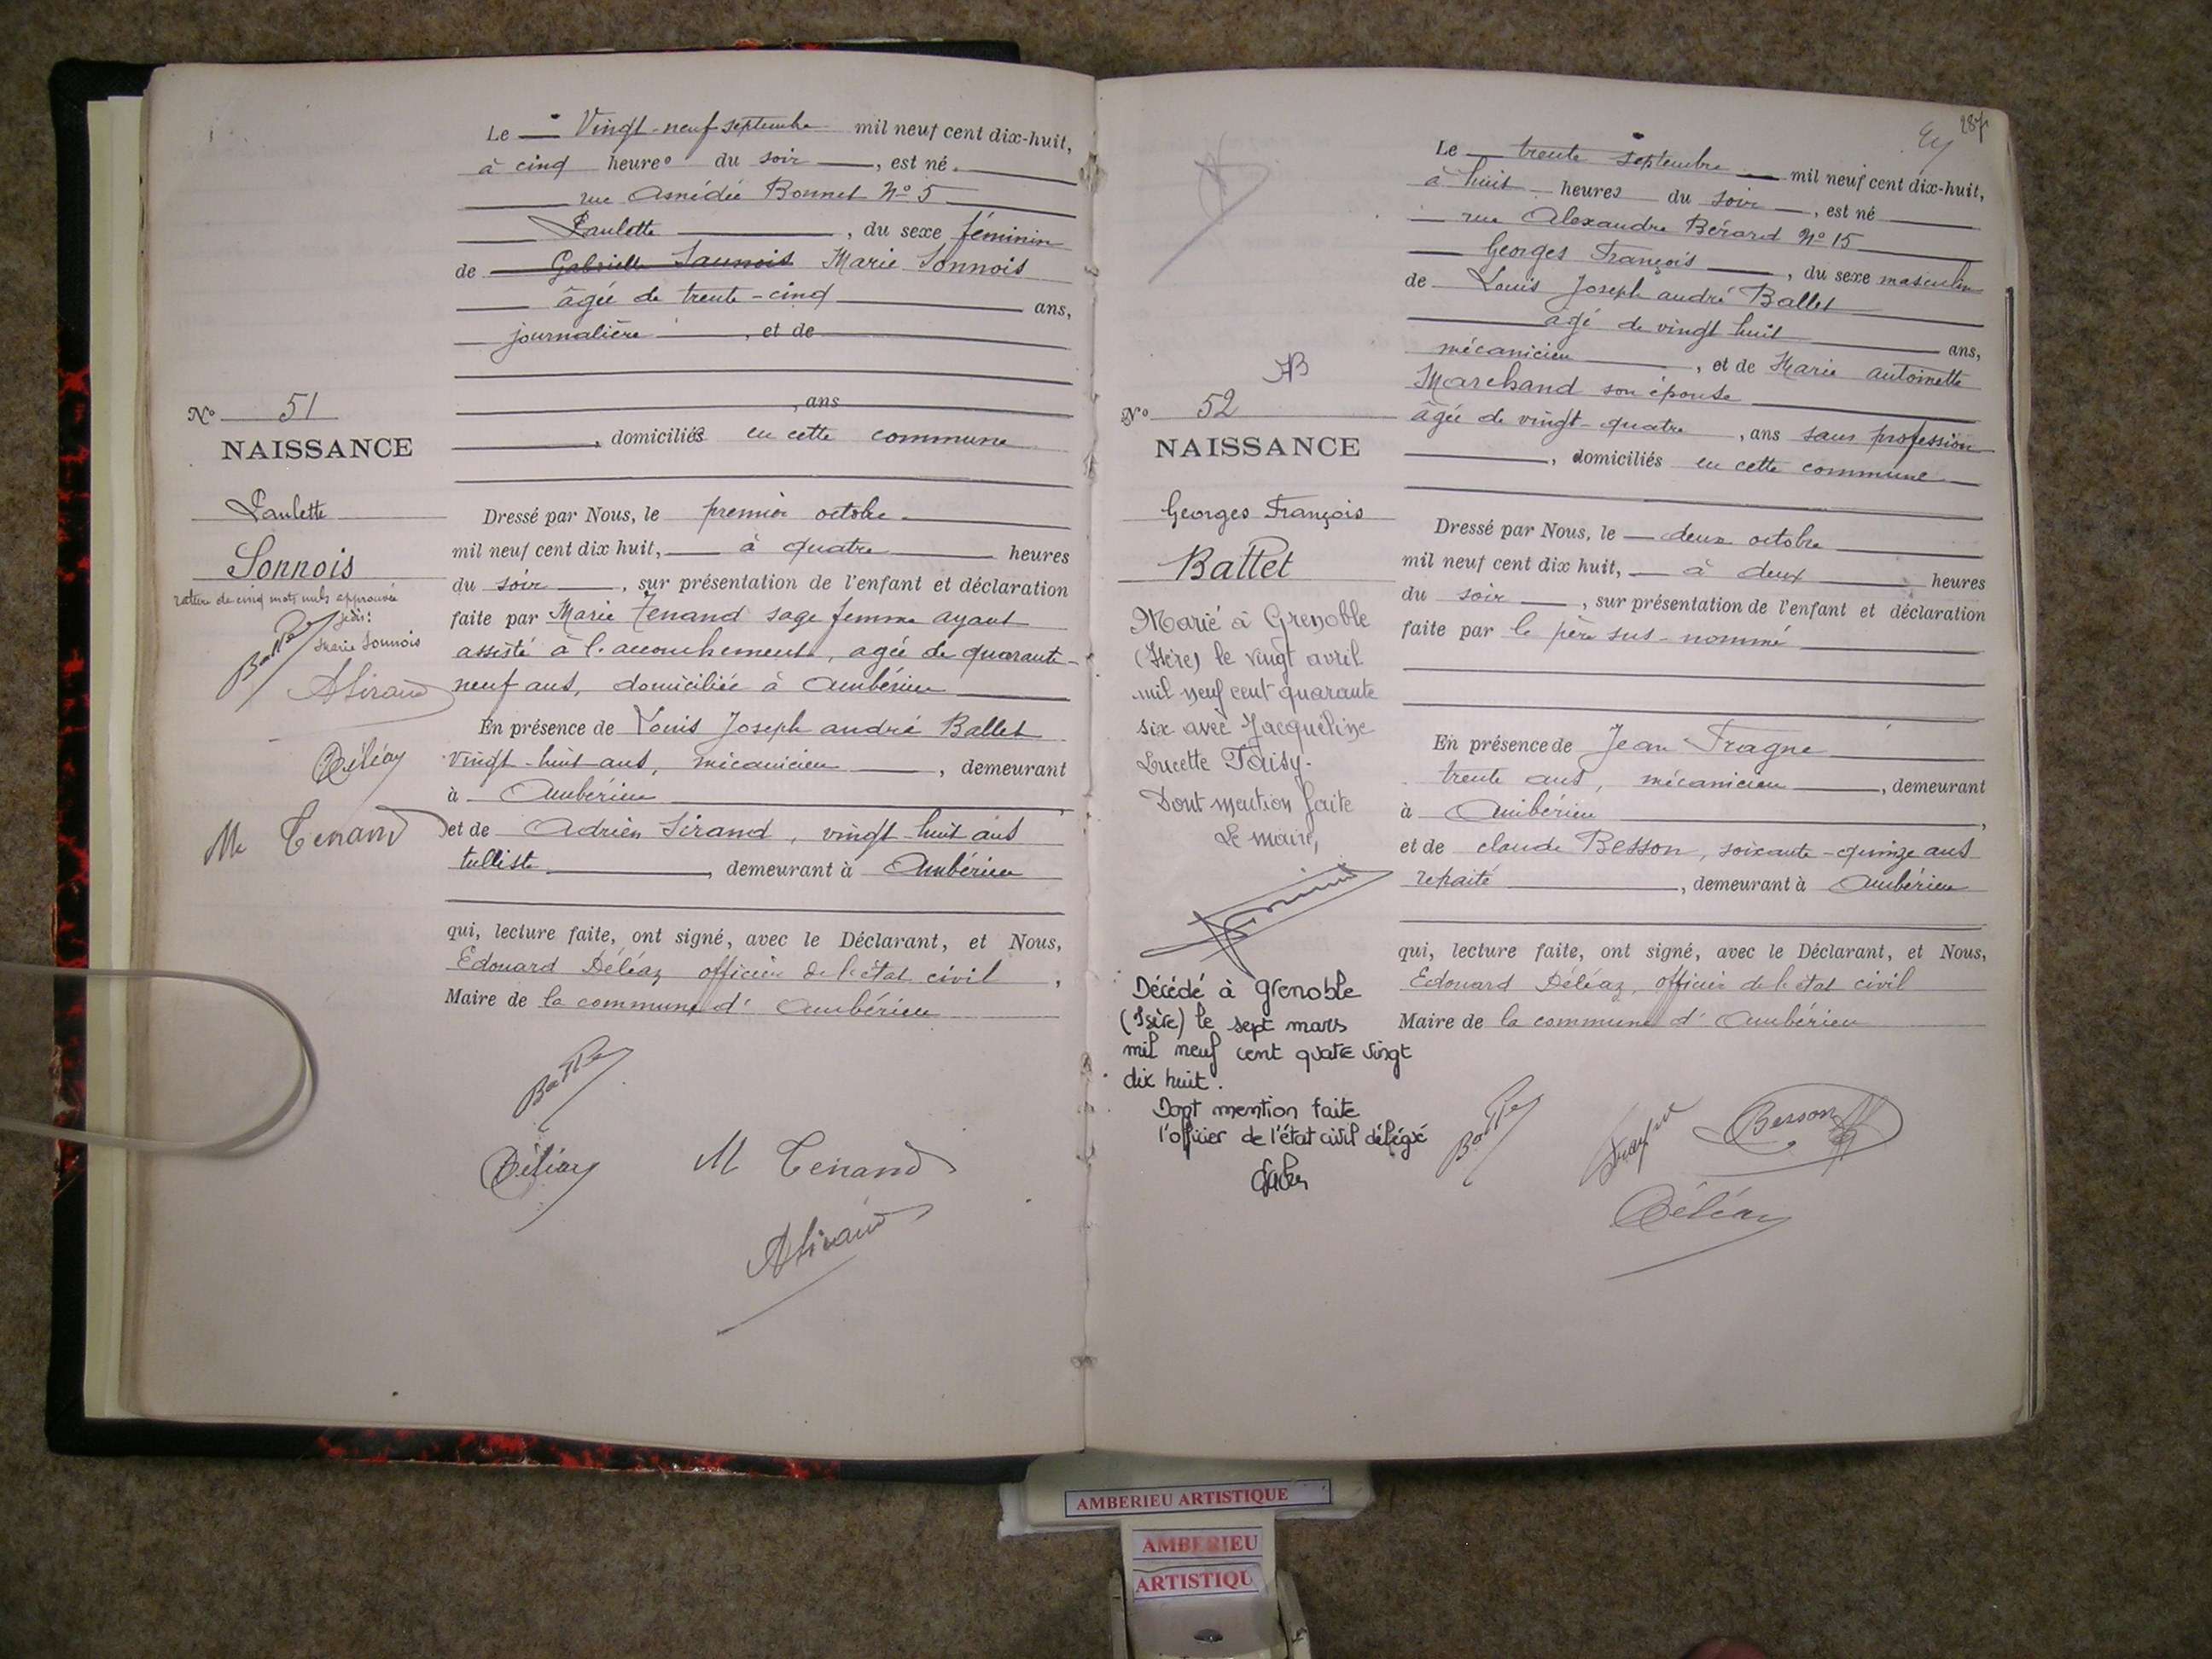 Le Vingt-neuf septembre mil neuf cent dix-huit,
à cinq heures du soir, est né
rue Amédée Bonnet No 5
Paulette, du sexe féminin
de Gabrielle Saunois Marie Sonnois
âgée de trente-cinq ans,
journalière, et de
, ans
, domiciliés en cette commune
No 51
NAISSANCE
Paulette
Sonnois
rature de cinq mots nuls approuvée
je dis:
Marie Sonnois
Ballet
ASirand
Déléaz
M Tenand
Dressé par Nous, le premier octobre
mil neuf cent dix huit, à quatre heures
du soir, sur présentation de l'enfant et déclaration
faite par Marie Tenand sage femme ayant
assisté à l'accouchement, agée de quarante-
neuf ans, domiciliée à Ambérieu
En présence de Louis Joseph andré Ballet
vingt-huit ans, mécanicien, demeurant
à Ambérieu
et de Adrien Sirand, vingt-huit ans
tulliste, demeurant à Ambérieu
qui, lecture faite, ont signé, avec le Déclarant, et Nous,
Edouard Déléaz officier de l'état civil,
Maire de la commune d'Ambérieu
Ballet
Déléaz
M Tenand
ASirand
287
Le trente septembre mil neuf cent dix-huit,
à huit heures du soir, est né
rue Alexandre Bérard No 15
Georges François, du sexe masculin
de Louis Joseph andré Ballet
âgé de vingt huit ans,
mécanicien, et de Marie antoinette
Marchand son épouse
âgée de vingt-quatre, ans sans profession
, domiciliés en cette commune
No 52
NAISSANCE
Georges François
Ballet
Marié à Grenoble
(Isère) le vingt avril
mil neuf cent quarante
six avec Jacqueline
Lucette Taisy.
Dont mention faite
Le maire,
Décédé à Grenoble
(Isère) le sept mars
mil neuf cent quatre vingt
dix huit.
Dont mention faite
l'officier de l'état civil délégué
Dressé par Nous, le deux octobre
mil neuf cent dix huit, à deux heures
du soir, sur présentation de l'enfant et déclaration
faite par le père sus-nommé
En présence de Jean Tragne
trente ans, mécanicien, demeurant
à Ambérieu,
et de claude Besson, soixante-quinze ans
retraité, demeurant à Ambérieu
qui, lecture faite, ont signé, avec le Déclarant, et Nous,
Edouard Déléaz, officier de l'état civil
Maire de la commune d'Ambérieu
Ballet
Besson
Déléaz
AMBERIEU ARTISTIQUE
AMBERIEU
ARTISTIQU